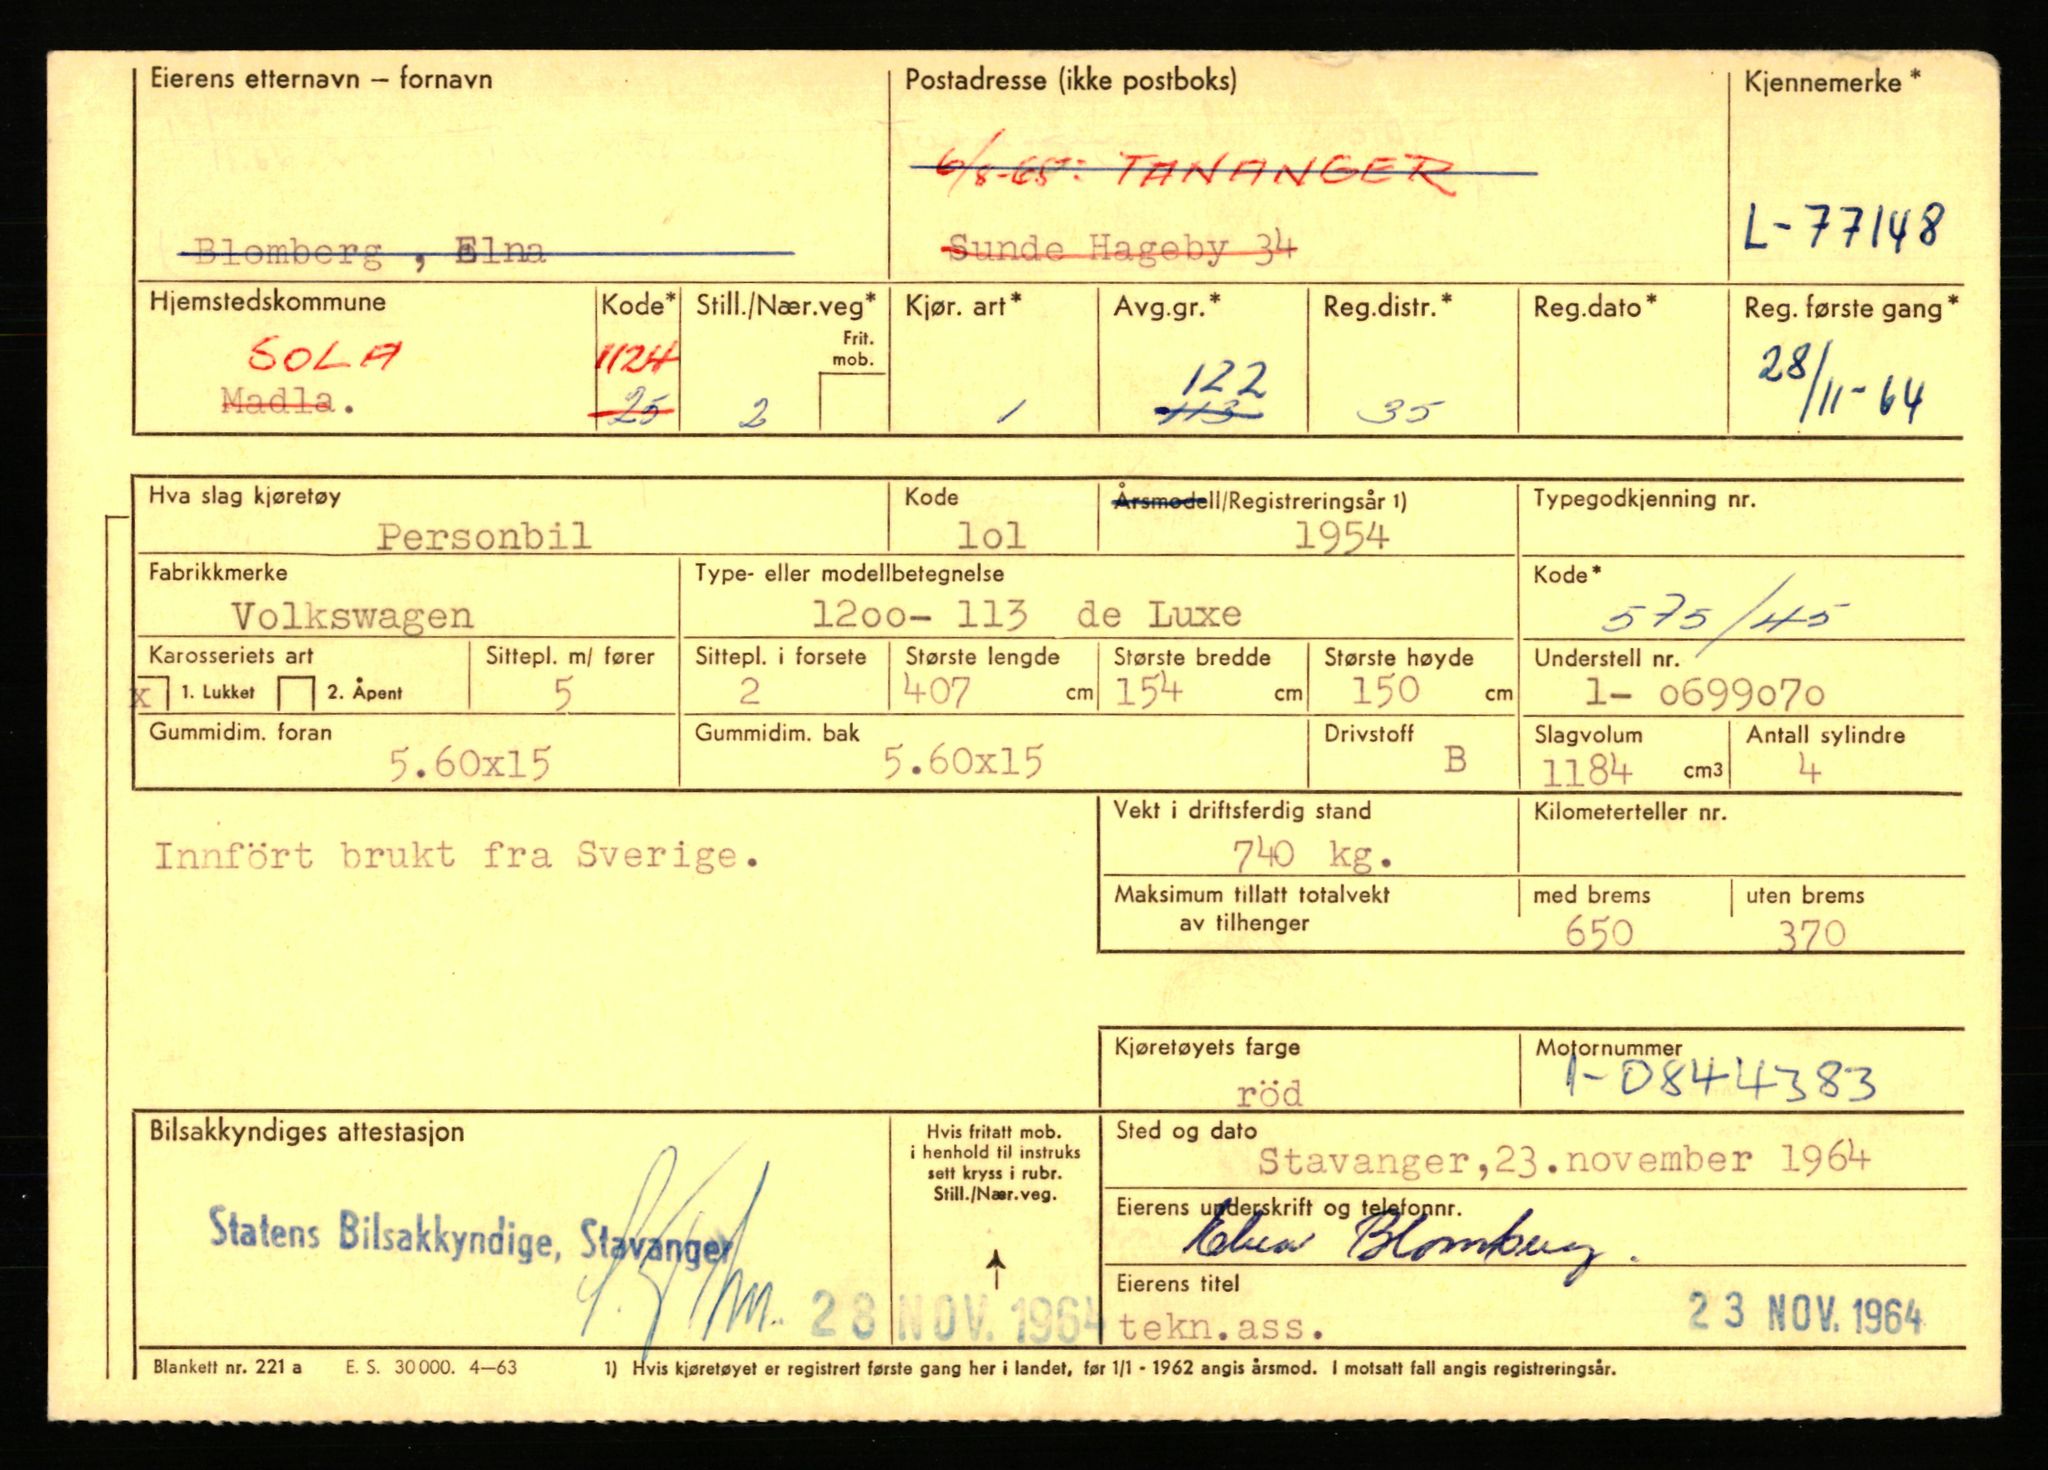 Eierens etternavn – fornavn
Postadresse (ikke postboks)
Kjennemerke*
6/8-65: TANANGER
L-77148
Blomberg , Elna
Sunde Hageby 34
Hjemstedskommune
Kode*
Still./Nær.veg*
Kjør. art*
Avg.gr.*
Reg.distr.*
Reg.dato*
Reg. første gang*
Frit.
mob.
SOLA
1124
122
28/11-64
Madla.
25
2
1
113
35
Hva slag kjøretøy
Kode
Årsmodell/Registreringsår 1)
Typegodkjenning nr.
Personbil
lol
1954
Fabrikkmerke
Type- eller modellbetegnelse
Kode*
Volkswagen
12oo- 113 de Luxe
575/45
Karosseriets art
Sittepl. m/ fører
Sittepl. i forsete
Største lengde
Største bredde
Største høyde
Understell nr.
x 1. Lukket 2. Åpent
5
2
407 cm
154 cm
150 cm
1- o699o70
Gummidim. foran
Gummidim. bak
Drivstoff
Slagvolum
Antall sylindre
5.60x15
5.60x15
B
1184 cm3
4
Vekt i driftsferdig stand
Kilometerteller nr.
Innfört brukt fra Sverige.
740 kg.
Maksimum tillatt totalvekt
av tilhenger
med brems
uten brems
650
370
Kjøretøyets farge
Motornummer
röd
1-0844383
Bilsakkyndiges attestasjon
Hvis fritatt mob.
i henhold til instruks
sett kryss i rubr.
Still./Nær.veg.
Sted og dato
Stavanger,23.november 1964
Eierens underskrift og telefonnr.
Elna Blomberg.
Statens Bilsakkyndige, Stavanger
28 NOV. 1964
Eierens titel
tekn.ass.
23 NOV. 1964
Blankett nr. 221 a E. S. 30 000. 4–63
1) Hvis kjøretøyet er registrert første gang her i landet, før 1/1 - 1962 angis årsmod. I motsatt fall angis registreringsår.